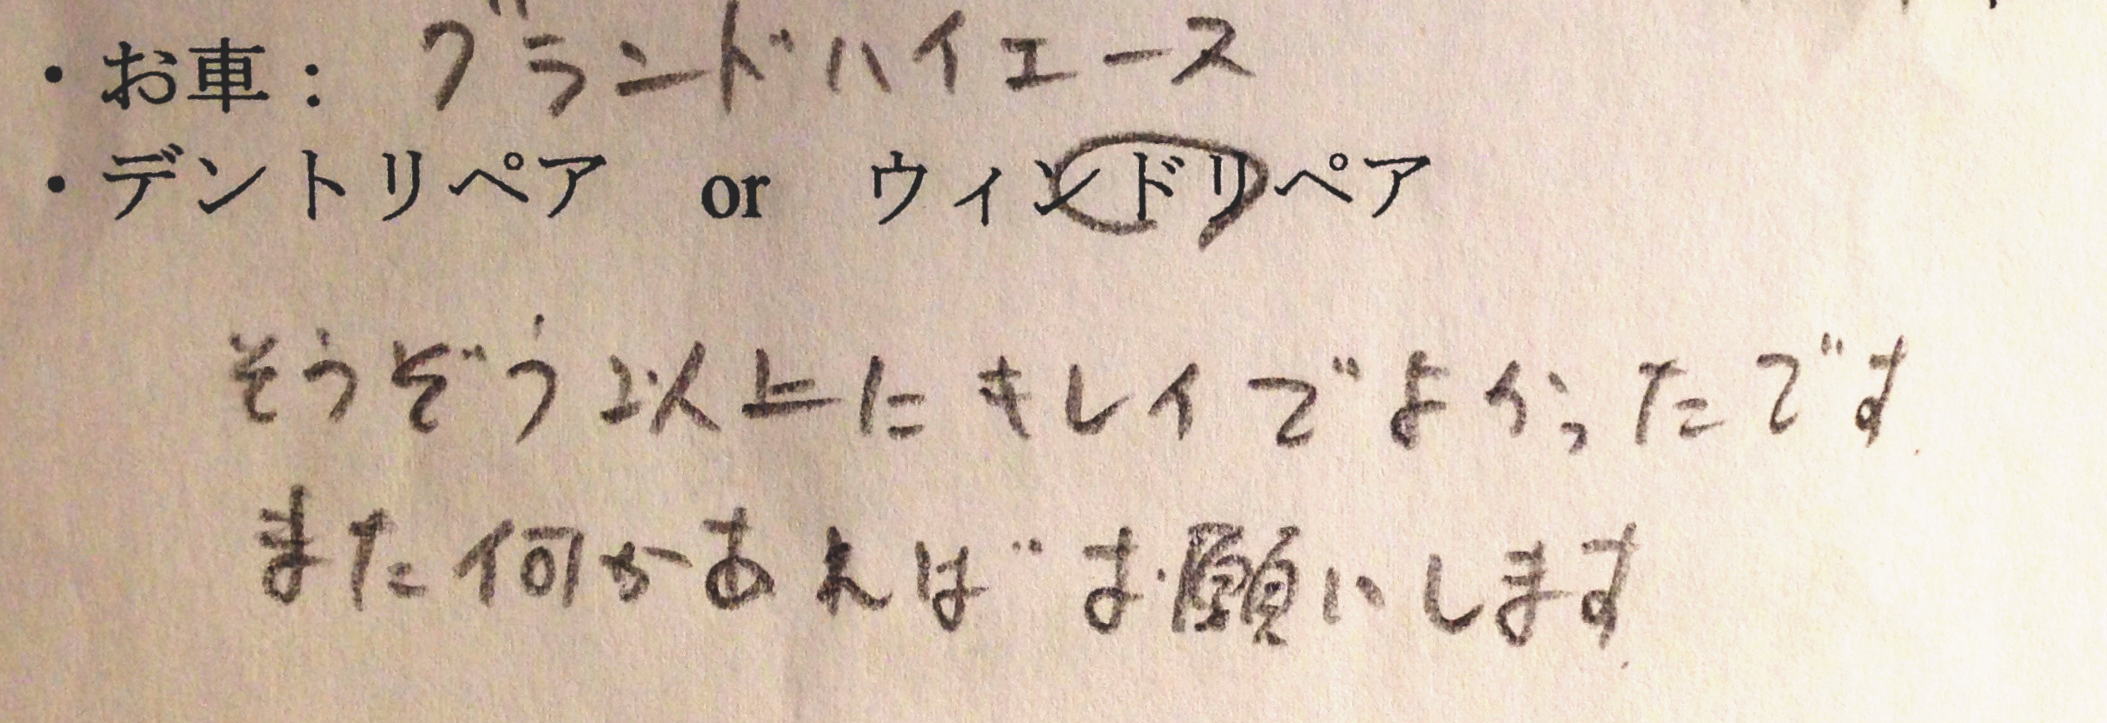 ・お車： グランドハイエース
・デントリペア or ウィンドリペア
そうぞう以上にキレイでよかったです
また何かあればお願いします